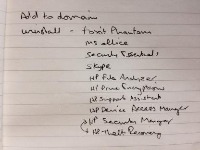 Add to domain
uninstall - foxit Phantom
ms office
Security Essentials
Skype
HP File Analyzer
HP Drive Encryption
HP Support Assistant
HP Device Access Manager
HP Security Manager
HP Theft Recovery